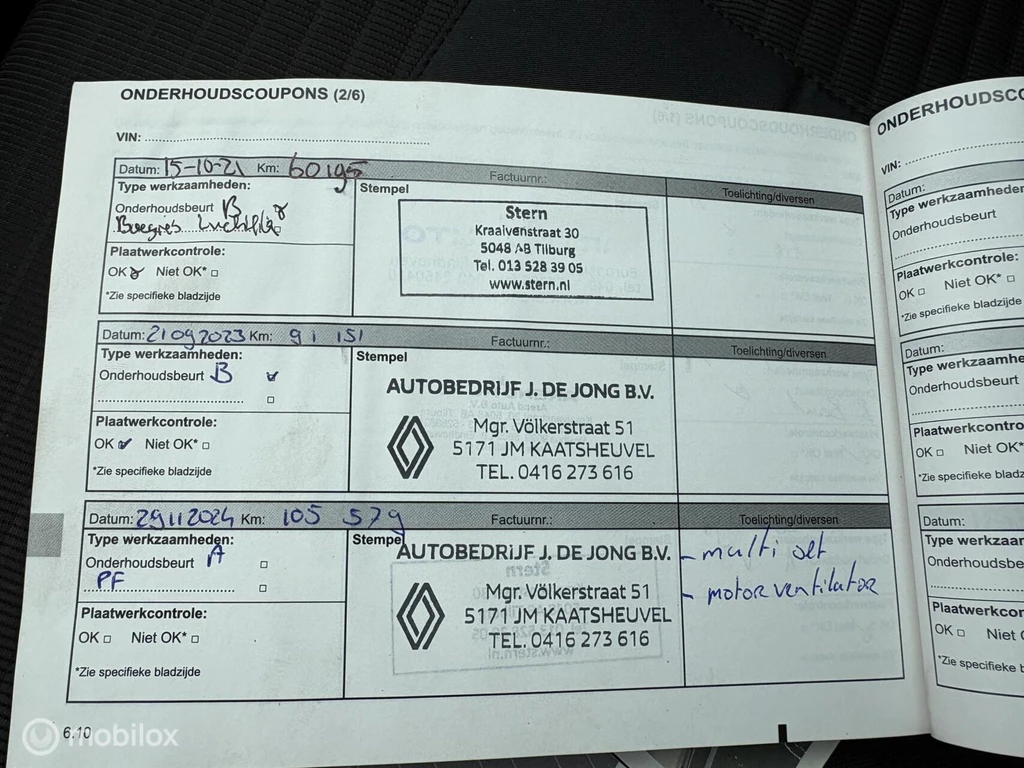 ONDERHOUDSCOUPONS (2/6)
VIN:
Datum: 15-10-21 Km: 60195 Factuurnr.:
Type werkzaamheden: Stempel Toelichting/diversen
Onderhoudsbeurt B
Plaatwerkcontrole:
OK Niet OK*
*Zie specifieke bladzijde
Stern
Kraaivenstraat 30
5048 AB Tilburg
Tel. 013 528 39 05
www.stern.nl
Datum: 21092023 Km: 91 151 Factuurnr.:
Type werkzaamheden: Stempel Toelichting/diversen
Onderhoudsbeurt B
Plaatwerkcontrole:
OK Niet OK*
*Zie specifieke bladzijde
AUTOBEDRIJF J. DE JONG B.V.
Mgr. Völkerstraat 51
5171 JM KAATSHEUVEL
TEL. 0416 273 616
Datum: 29112024 Km: 105 579 Factuurnr.:
Type werkzaamheden: Stempel Toelichting/diversen
Onderhoudsbeurt A
PF
Plaatwerkcontrole:
OK Niet OK*
*Zie specifieke bladzijde
AUTOBEDRIJF J. DE JONG B.V.
Mgr. Völkerstraat 51
5171 JM KAATSHEUVEL
TEL. 0416 273 616
- multi
- motorventilator
6.10
mobilox
ONDERHOUDSCO
VIN:
Datum:
Type werkzaamheden
Onderhoudsbeurt
Plaatwerkcontrole:
OK Niet OK*
*Zie specifieke bladz
Datum:
Type werkzaamhe
Onderhoudsbeurt
Plaatwerkcontro
OK Niet OK*
*Zie specifieke bladz
Datum:
Type werkzaar
Onderhoudsbe
Plaatwerkcor
OK Niet C
*Zie specifieke b